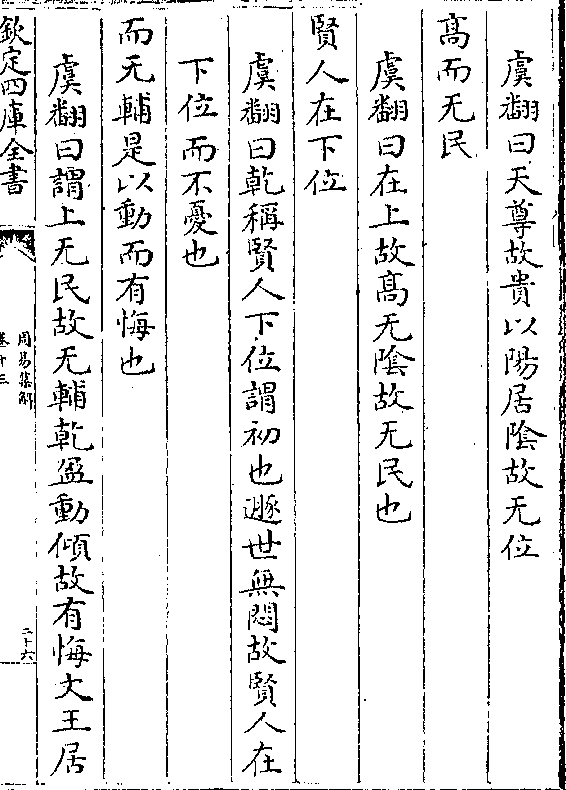 虞翻曰天尊故貴以陽居陰故无位
髙而无民
虞翻曰在上故髙无陰故无民也
賢人在下位
虞翻曰乾稱賢人下位謂初也遯世無悶故賢人在
下位而不憂也
而无輔是以動而有悔也
虞翻曰謂上无民故无輔乾盈動傾故有悔文王居
欽定四庫全書
周易集解
卷十三
二十六